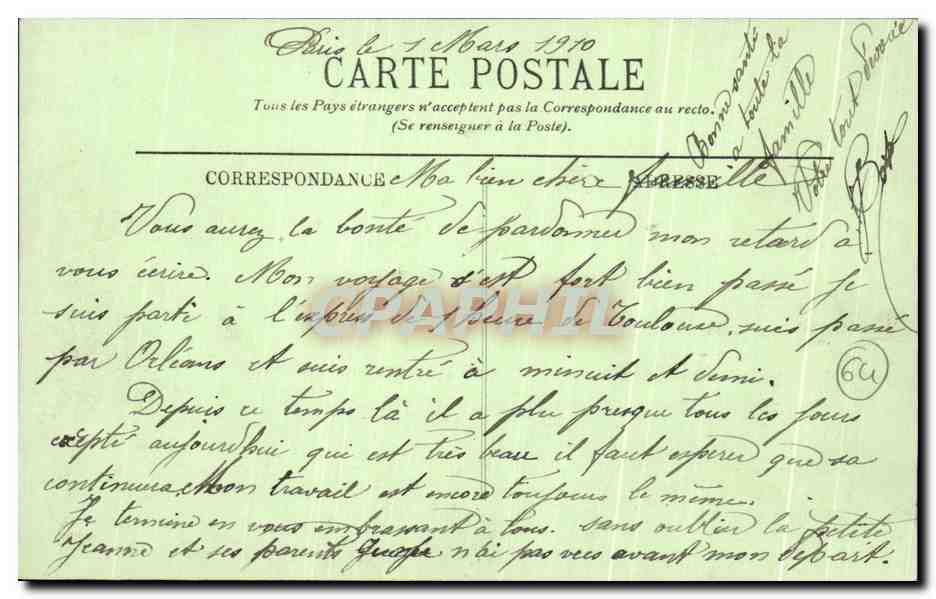 Paris le 1 Mars 1910
CARTE POSTALE
Tous les Pays étrangers n'acceptent pas la Correspondance au recto.
(Se renseigner à la Poste).
CORRESPONDANCE Ma bien chère famille ADRESSE
Vous aurez la bonté de pardonner mon retard à
vous écrire. Mon voyage s'est fort bien passé je
suis parti à l'express de 1 heure de Toulouse, suis passé
par Orléans et suis rentré à minuit et demi.
Depuis ce temps là il a plu presque tous les jours
excepté aujourdhui qui est très beau il faut esperer que sa
continuera. Mon travail est encore toujours le même.
Je termine en vous embrassant à tous. sans oublier la petite
Jeanne et ses parents que je n'ai pas vus avant mon départ.
Bonne santé
a toute la
famille
Votre tout dévoué
64
CPAPHIL